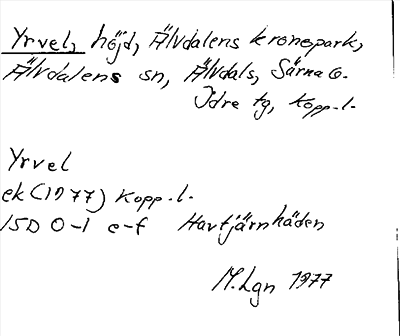 Yrvel, höjd, Älvdalens kronopark,
Älvdalens sn, Älvdals, Särna o.
Idre tg, Kopp.l.
Yrvel
ek (1977) Kopp.l.
15D 0-1 e-f Havtjärnhäden
M.Lgn 1977